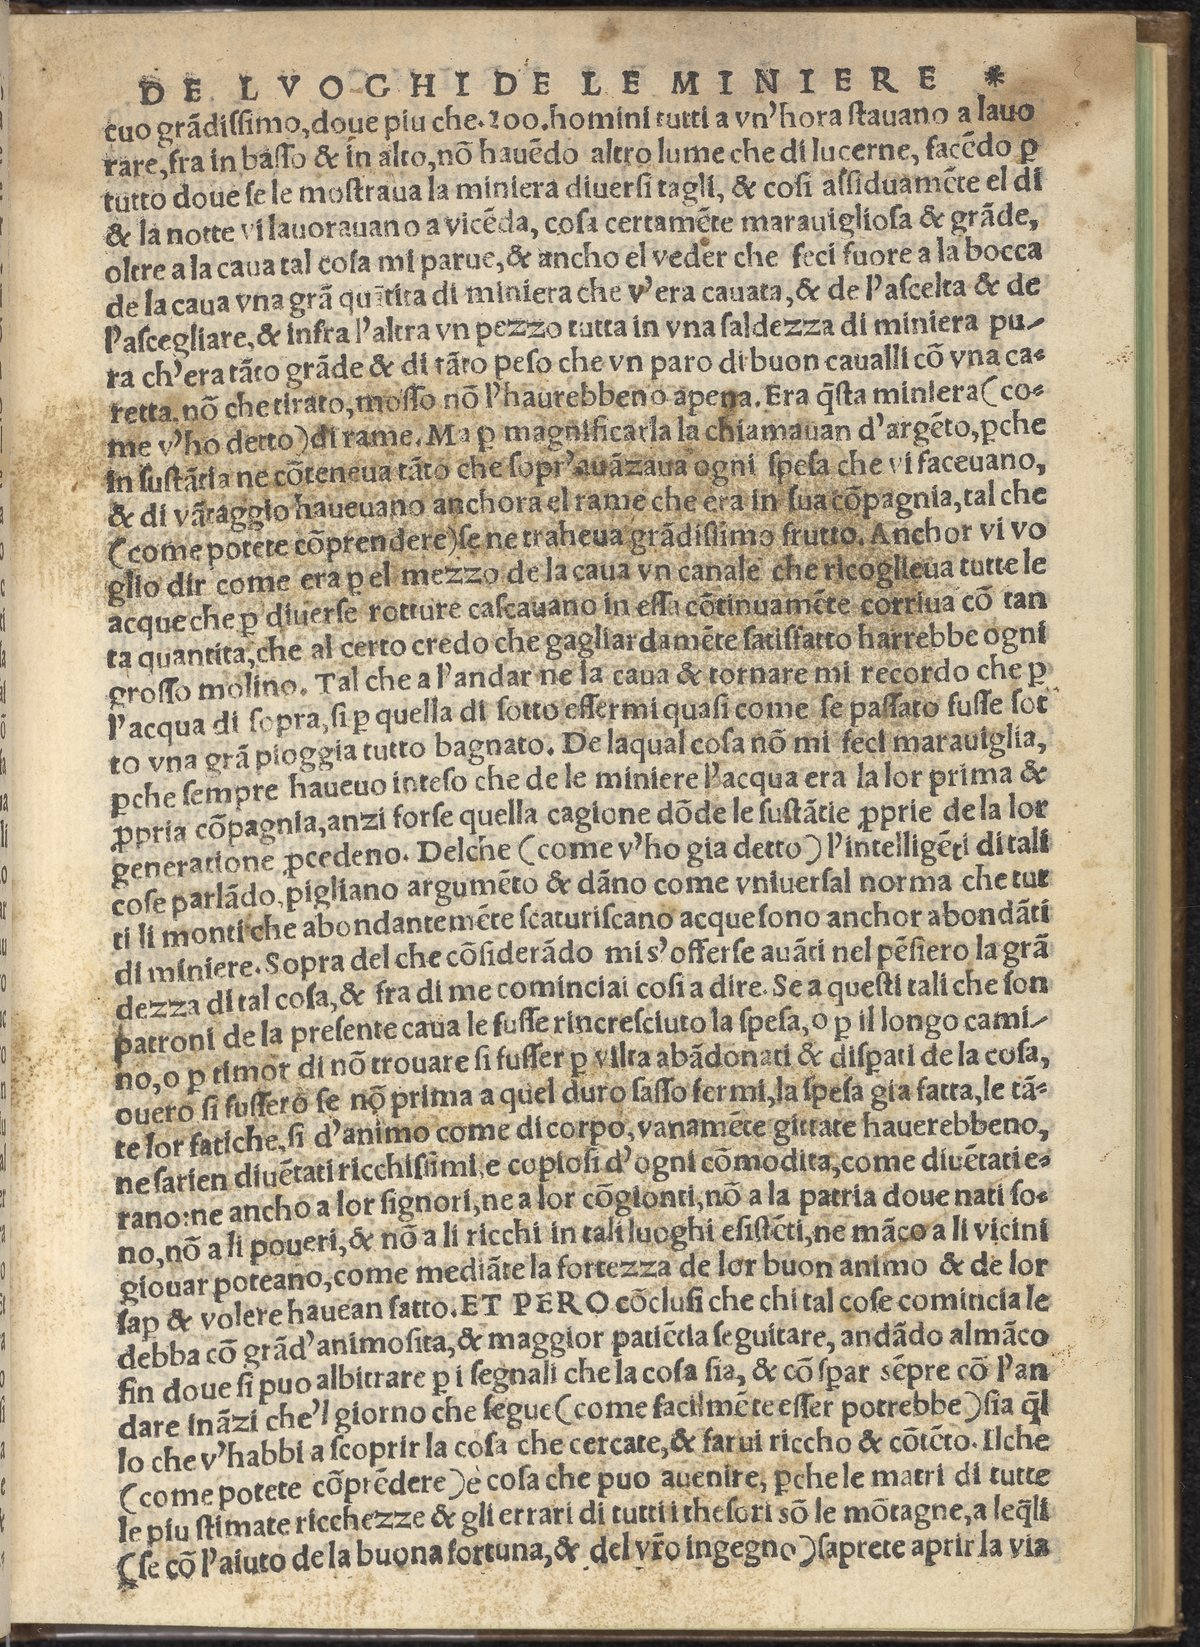 DE LVOGHI DE LE MINIERE *
tuo grãdissimo, doue piu che .200. homini tutti a vn'hora stauano a lauo
rare, fra in basso & in alto, nõ hauẽdo altro lume che di lucerne, facẽdo ꝑ
tutto doue se le mostraua la miniera diuersi tagli, & cosi assiduamẽte el di
& la notte vi lauorauano a vicẽda, cosa certamẽte marauigliosa & grãde,
oltre a la caua tal cosa mi parue, & ancho el veder che feci fuore a la bocca
de la caua vna grã quãtita di miniera che v'era cauata, & de l'ascelta & de
l'ascegliare, & infra l'altra vn pezzo tutta in vna saldezza di miniera pu-
ra ch'era tãto grãde & di tãto peso che vn paro di buon caualli cõ vna ca-
retta. nõ che tirato, mosso nõ l'haurebbeno apena. Era q̃sta miniera (co-
me v'ho detto) di rame. Ma ꝑ magnificarla la chiamauan d'argẽto, ꝑche
in sustãtia ne cõteneua tãto che sopr'auãzaua ogni spesa che vi faceuano,
& di vãtaggio haueuano anchora el rame che era in sua cõpagnia, tal che
(come potete cõprendere) se ne traheua grãdissimo frutto. Anchor vi vo
glio dir come era ꝑ el mezzo de la caua vn canale che ricoglieua tutte le
acque che ꝑ diuerse rotture cascauano in essa cõtinuamẽte corriua cõ tan
ta quantita, che al certo credo che gagliardamẽte satisfatto harrebbe ogni
grosso molino. Tal che a l'andar ne la caua & tornare mi recordo che ꝑ
l'acqua di sopra, si ꝑ quella di sotto essermi quasi come se passato fusse sot
to vna grã pioggia tutto bagnato. De laqual cosa nõ mi feci marauiglia,
ꝑche sempre haueuo inteso che de le miniere l'acqua era la lor prima &
ꝓpria cõpagnia, anzi forse quella cagione dõde le sustãtie ꝓprie de la lor
generatione ꝓcedeno. Delche (come v'ho gia detto) l'intelligẽti di tali
cose parlãdo, pigliano argumẽto & dãno come vniuersal norma che tut
ti li monti che abondantemẽte scaturiscano acque sono anchor abondãti
di miniere. Sopra del che cõsiderãdo mi s'offerse auãti nel pẽsiero la grã
dezza di tal cosa, & fra di me cominciai cosi a dire. Se a questi tali che son
patroni de la presente caua le fusse rincresciuto la spesa, o ꝑ il longo cami-
no, o ꝑ timor di nõ trouare si fusser ꝑ vilta abãdonati & disꝑati de la cosa,
ouero si fussero se nõ prima a quel duro sasso fermi, la spesa gia fatta, le tã-
te lor fatiche, si d'animo come di corpo, vanamẽte gittate hauerebbeno,
ne sarien diuẽtati ricchissimi, e copiosi d'ogni cõmodita, come diuẽtati e-
rano: ne ancho a lor signori, ne a lor cõgionti, nõ a la patria doue nati so-
no, nõ a li poueri, & nõ a li ricchi in tali luoghi esistẽti, ne mãco a li vicini
giouar poteano, come mediãte la fortezza de lor buon animo & de lor
saꝑ & volere hauean fatto. ET PERO cõclusi che chi tal cose comincia le
debba cõ grãd'animosita, & maggior patiẽtia seguitare, andãdo almãco
fin doue si puo albitrare ꝑ i segnali che la cosa sia, & cõ sꝑar sẽpre cõ l'an
dare inãzi che'l giorno che segue (come facilmẽte esser potrebbe) sia q̃l
lo che v'habbi a scoprir la cosa che cercate, & farui riccho & cõtẽto. Ilche
(come potete cõprẽdere) è cosa che puo auenire, ꝑche le matri di tutte
le piu stimate ricchezze & gli errari di tutti i thesori sõ le mõtagne, a leq̃li
(se cõ l'aiuto de la buona fortuna, & del vr̃o ingegno) saprete aprir la via